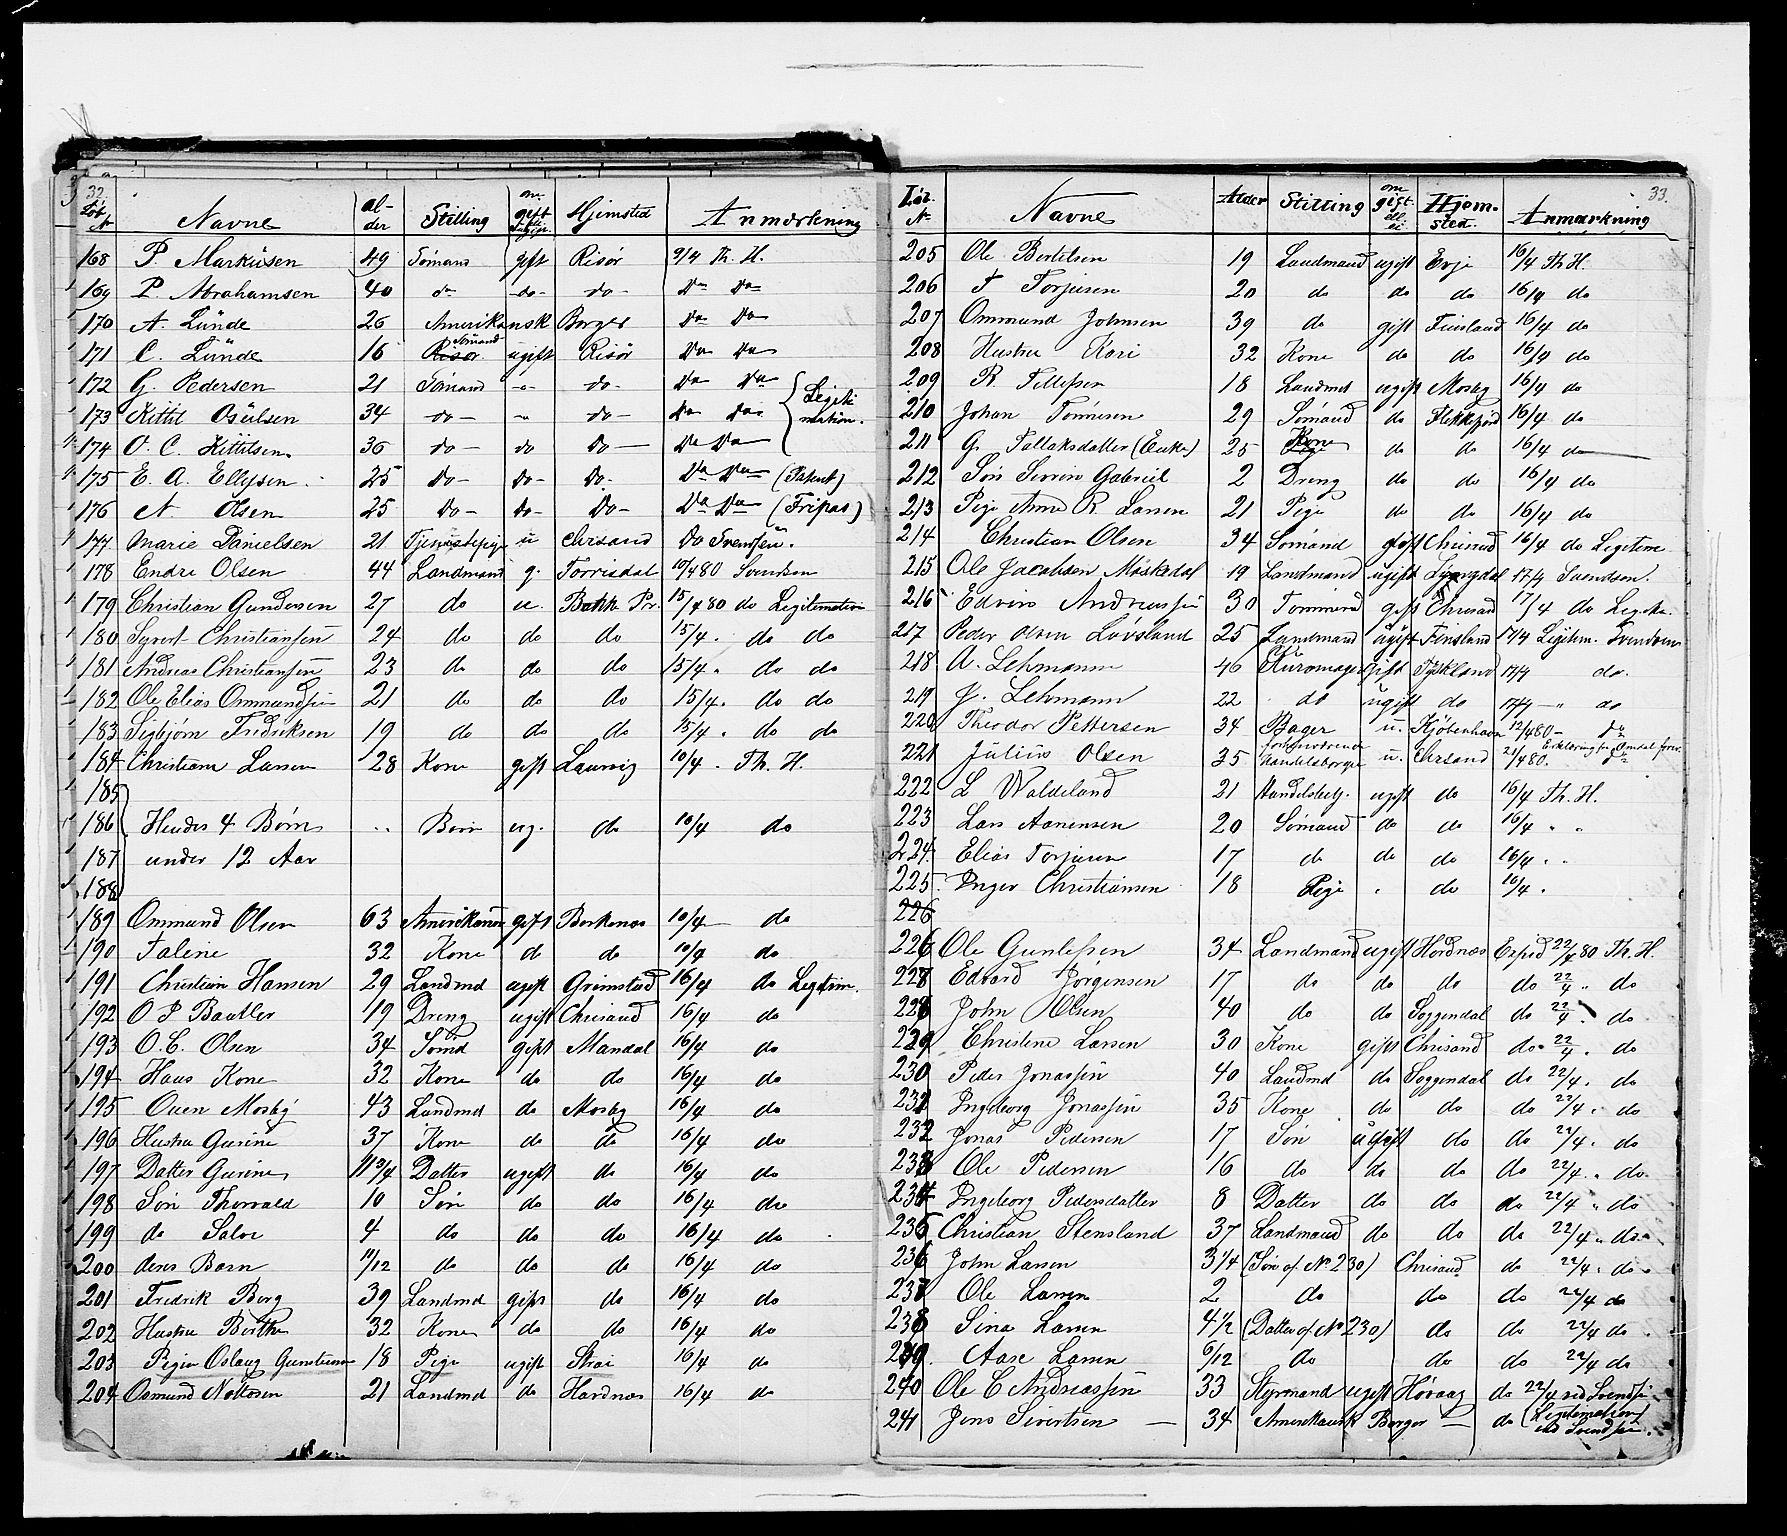 32
Løb. N Navne Alder Stilling om gift eller ugift Hjemsted Anmærkning
168 P. Markusen 49 Sömand gift Risör 9/4 Th. H.
169 P. Abrahamsen 40 do do do Do Do
170 A. Lunde 26 Amerikansk Borger Do Do
171 C. Lunde 16 Sömand ugift Risör Do Do
172 G. Pedersen 21 Sömand do Do Do
173 Kittil Osulsen 34 do do Do Do Legitimation.
174 O. C. Kittilsen 36 do do do Do Do
175 E. A. Ellefsen 25 do do do Do Do (Patent)
176 N. Olsen 25 do do do Do Do (Fripas)
177 Marie Danielsen 21 Tjenestepige u Chrsand Do Svendsen.
178 Endre Olsen 44 Landmand g. Torrisdal 10/4 80 Svendsen
179 Christian Gundersen 27 do u. Bakke Pr. 15/4 80 do Legitimation
180 Syvert Christiansen 24 do do do 15/4. do do
181 Andreas Christiansen 23 do do do 15/4. do do
182 Ole Elias Ommundsen 21 do do do 15/4. do do
183 Sigbjørn Fredriksen 19 do do do 15/4. do do
184 Christiane Larsen 28 Kone gift Laurvig 10/4. Th. H.
185
186 Hendes 4 Børn Børn ug. do 10/4 do
187 under 12 Aar
188
189 Ommund Olsen 63 Amerikaner gift Birkenæs 10/4 do
190 Taline 32 Kone do do 10/4 do
191 Christian Hansen 29 Landmd ugift Grimstad 16/4 do Legitim.
192 O P Baatler 19 Dreng ugift Chrisand 16/4 do
193 O. C. Olsen 34 Sömd gift Mandal 16/4 do
194 Hans Kone 32 Kone do do 16/4 do
195 Ouen Mosby 43 Landmd do Mosby 16/4 do
196 Hustru Gurine 37 Kone do do 16/4 do
197 Datter Gurine 11 3/4 Datter ugift do 16/4 do
198 Søn Thorvald 10 Søn do do 16/4 do
199 do Salve 4 do do do 16/4 do
200 deres Barn 11/12 do do do 16/4 do
201 Fredrik Berg 39 Landmd gift do 16/4 do
202 Hustru Berthe 32 Kone do do 16/4 do
203 Pigen Oslaug Gunsteinsen 18 Pige ugift Strai 16/4 do
204 Osmund Noltesen 21 Landmd do Hardnæs 16/4 do
33.
Løb. No Navne Alder Stilling om gift ell. ei Hjemsted. Anmærkning
205 Ole Bertelsen 19 Landmand ugift Evje 16/4 Th H.
206 T Torjusen 20 do do do 16/4 do
207 Ommund Johnsen 39 do gift Finsland 16/4 do
208 Hustru Kari 32 Kone do do 16/4 do
209 R Tellefsen 18 Landmd ugift Mosby 16/4 do
210 Johan Tønnesen 29 Sømand do Flekkefjord 16/4 do
211 G. Tallaksdatter (Enke) 25 Kone do do 16/4 do
212 Søn Severin Gabriel 2 Dreng do do 16/4 do
213 Pige Anne R. Larsen 21 Pige do do 16/4 do
214 Christian Olsen 34 Sömand gift Chrisand 16/4 do Legitime
215 Ole Jacobsen Moskedal 19 Landmand ugift Lyngdal 17/4 Svendsen.
216 Edvin Andreassen 30 Tømmermd gift Chrisand 17/4 do Legitim.
217 Peder Olsen Løvsland 25 Landmand ugift Finsland 17/4 Legitim. Svendsen
218 A. Lehmann 46 Uhrmager gift Tyskland 17/4 do.
219 J. Lehmann 22 do ugift do 17/4 " do
220 Theodor Pettersen 34 Bager u. Kjöbenhavn 12/4 80 - do
221 Julius Olsen 35 forhenværende Handelsborger u. Chrsand 21/4 80. Erklæring fra Omdal forev.
222 L Waldeland 21 Handelsbetj. ugift do 16/4 Th. H.
223 Lars Aanensen 20 Sømand do do 16/4 " "
224 Elias Torjusen 17 do do do 16/4 " "
225 Inger Christiansen 18 Pige " do 16/4 "
226
226 Ole Gunlefsen 34 Landmand ugift Hordnæs Exped 22/4 80 Th. H.
227 Edvard Jørgensen 17 do do do do 22/4 " do
228 John Olsen 40 do do Soggendal do 22/4 " do
229 Christine Larsen 30 Kone gift Chrisand do 22/4 " do
230 Peder Jonassen 40 Landmd do Soggendal do 22/4. do
231 Ingeborg Jonassen 35 Kone do do do 22/4 " do
232 Jonas Pedersen 17 Søn ugift do do 22/4. do
233 Ole Pedersen 16 do do do do 22/4 " do
234 Ingeborg Pedersdatter 8 Datter do do do 22/4 " do
235 Christian Stensland 37 Landmand do do do 22/4 " do
236 John Larsen 3 1/4 (Søn af No 230) Chrisand do 22/4 " do
237 Ole Larsen 2 do do do 22/4 do
238 Sina Larsen 4 1/2 (Datter af No 230) do do 22/4 do
239. Aase Larsen 6/12 do do do 22/4 do
240 Ole C Andreassen 33 Styrmand ugift Høvaag do 22/4 ved Svendsen
241 Jens Sivertsen 34 Amerikansk Borger do (Legitimation) ved Svendsen.